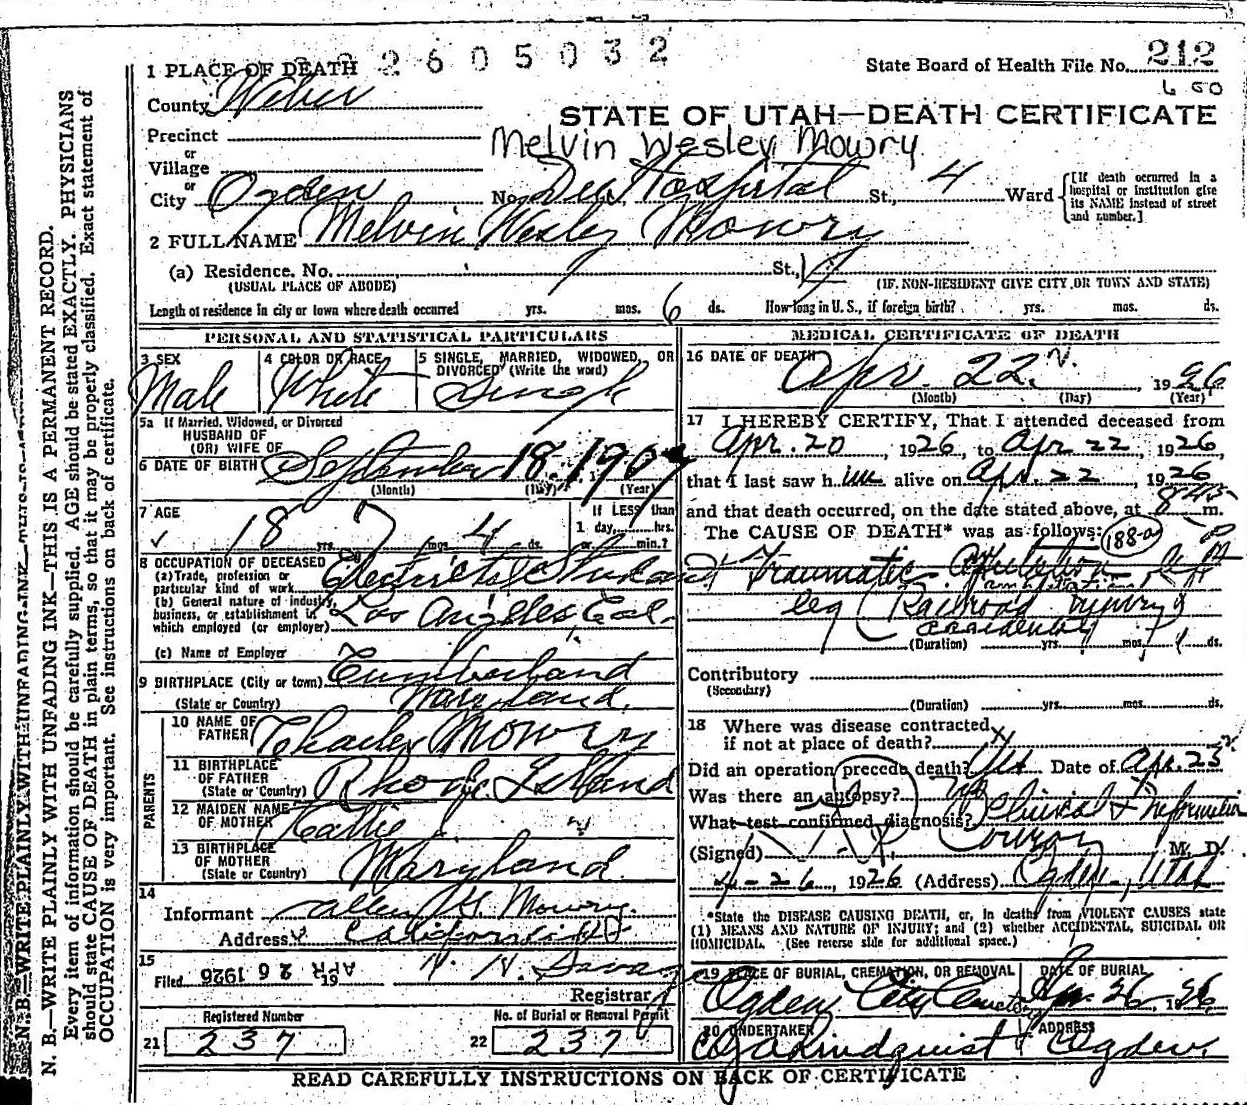 2605032
1 PLACE OF DEATH
State Board of Health File No. 212
County Weber
600
STATE OF UTAH—DEATH CERTIFICATE
Precinct
Melvin Wesley Mowry
or
Village
or
City Ogden No. Dee Hospital St., 4 Ward
[If death occurred in a hospital or institution give its NAME instead of street and number.]
2 FULL NAME Melvin Wesley Mowry
(a) Residence. No. St.,
(USUAL PLACE OF ABODE) (IF NON-RESIDENT GIVE CITY OR TOWN AND STATE)
Length of residence in city or town where death occurred yrs. mos. 6 ds. How long in U.S., if foreign birth? yrs. mos. ds.
PERSONAL AND STATISTICAL PARTICULARS
3 SEX
Male
4 COLOR OR RACE
White
5 SINGLE, MARRIED, WIDOWED, OR
DIVORCED (Write the word)
Single
5a If Married, Widowed, or Divorced
HUSBAND OF
(OR) WIFE OF
6 DATE OF BIRTH September 18, 1907
(Month) (Day) (Year)
7 AGE
18 yrs. 7 mos. 4 ds.
If LESS than
1 day, hrs.
or min.?
8 OCCUPATION OF DECEASED
(a) Trade, profession or
particular kind of work Electrical Student
(b) General nature of industry,
business, or establishment in
which employed (or employer) Los Angeles, Cal.
(c) Name of Employer
9 BIRTHPLACE (City or town) Cumberland
(State or Country) Maryland.
PARENTS
10 NAME OF
FATHER Charles Mowry
11 BIRTHPLACE
OF FATHER
(State or Country) Rhode Island
12 MAIDEN NAME
OF MOTHER
13 BIRTHPLACE
OF MOTHER
(State or Country) Maryland.
14
Informant Allen G. Mowry.
Address California
15
Filed APR 26 1926 19
Registrar
Registered Number
21 237
No. of Burial or Removal Permit
22 237
MEDICAL CERTIFICATE OF DEATH
16 DATE OF DEATH
Apr. 22, 1926
(Month) (Day) (Year)
17 I HEREBY CERTIFY, That I attended deceased from
Apr. 20, 1926, to Apr 22, 1926
that I last saw him alive on Apr. 22, 1926
and that death occurred, on the date stated above, at 845 P m.
The CAUSE OF DEATH* was as follows: 188-a
Traumatic left
amputation
leg (Railroad injury)
accidental
(Duration) yrs. mos. ds.
Contributory
(Secondary)
(Duration) yrs. mos. ds.
18 Where was disease contracted
if not at place of death?
Did an operation precede death? Yes Date of Apr. 25
Was there an autopsy? No
What test confirmed diagnosis? Clinical & Information
(Signed) Conroy M. D.
4-26, 1926 (Address) Ogden, Utah
*State the DISEASE CAUSING DEATH, or, in deaths from VIOLENT CAUSES state
(1) MEANS AND NATURE OF INJURY; and (2) whether ACCIDENTAL, SUICIDAL OR
HOMICIDAL. (See reverse side for additional space.)
19 PLACE OF BURIAL, CREMATION, OR REMOVAL
Ogden City Cemetery
DATE OF BURIAL
Apr. 26, 1926
20 UNDERTAKER
Lindquist
ADDRESS
Ogden.
READ CAREFULLY INSTRUCTIONS ON BACK OF CERTIFICATE
N. B.—WRITE PLAINLY WITH UNFADING INK—THIS IS A PERMANENT RECORD.
Every item of information should be carefully supplied. AGE should be stated EXACTLY. PHYSICIANS
should state CAUSE OF DEATH in plain terms, so that it may be properly classified. Exact statement of
OCCUPATION is very important. See instructions on back of certificate.